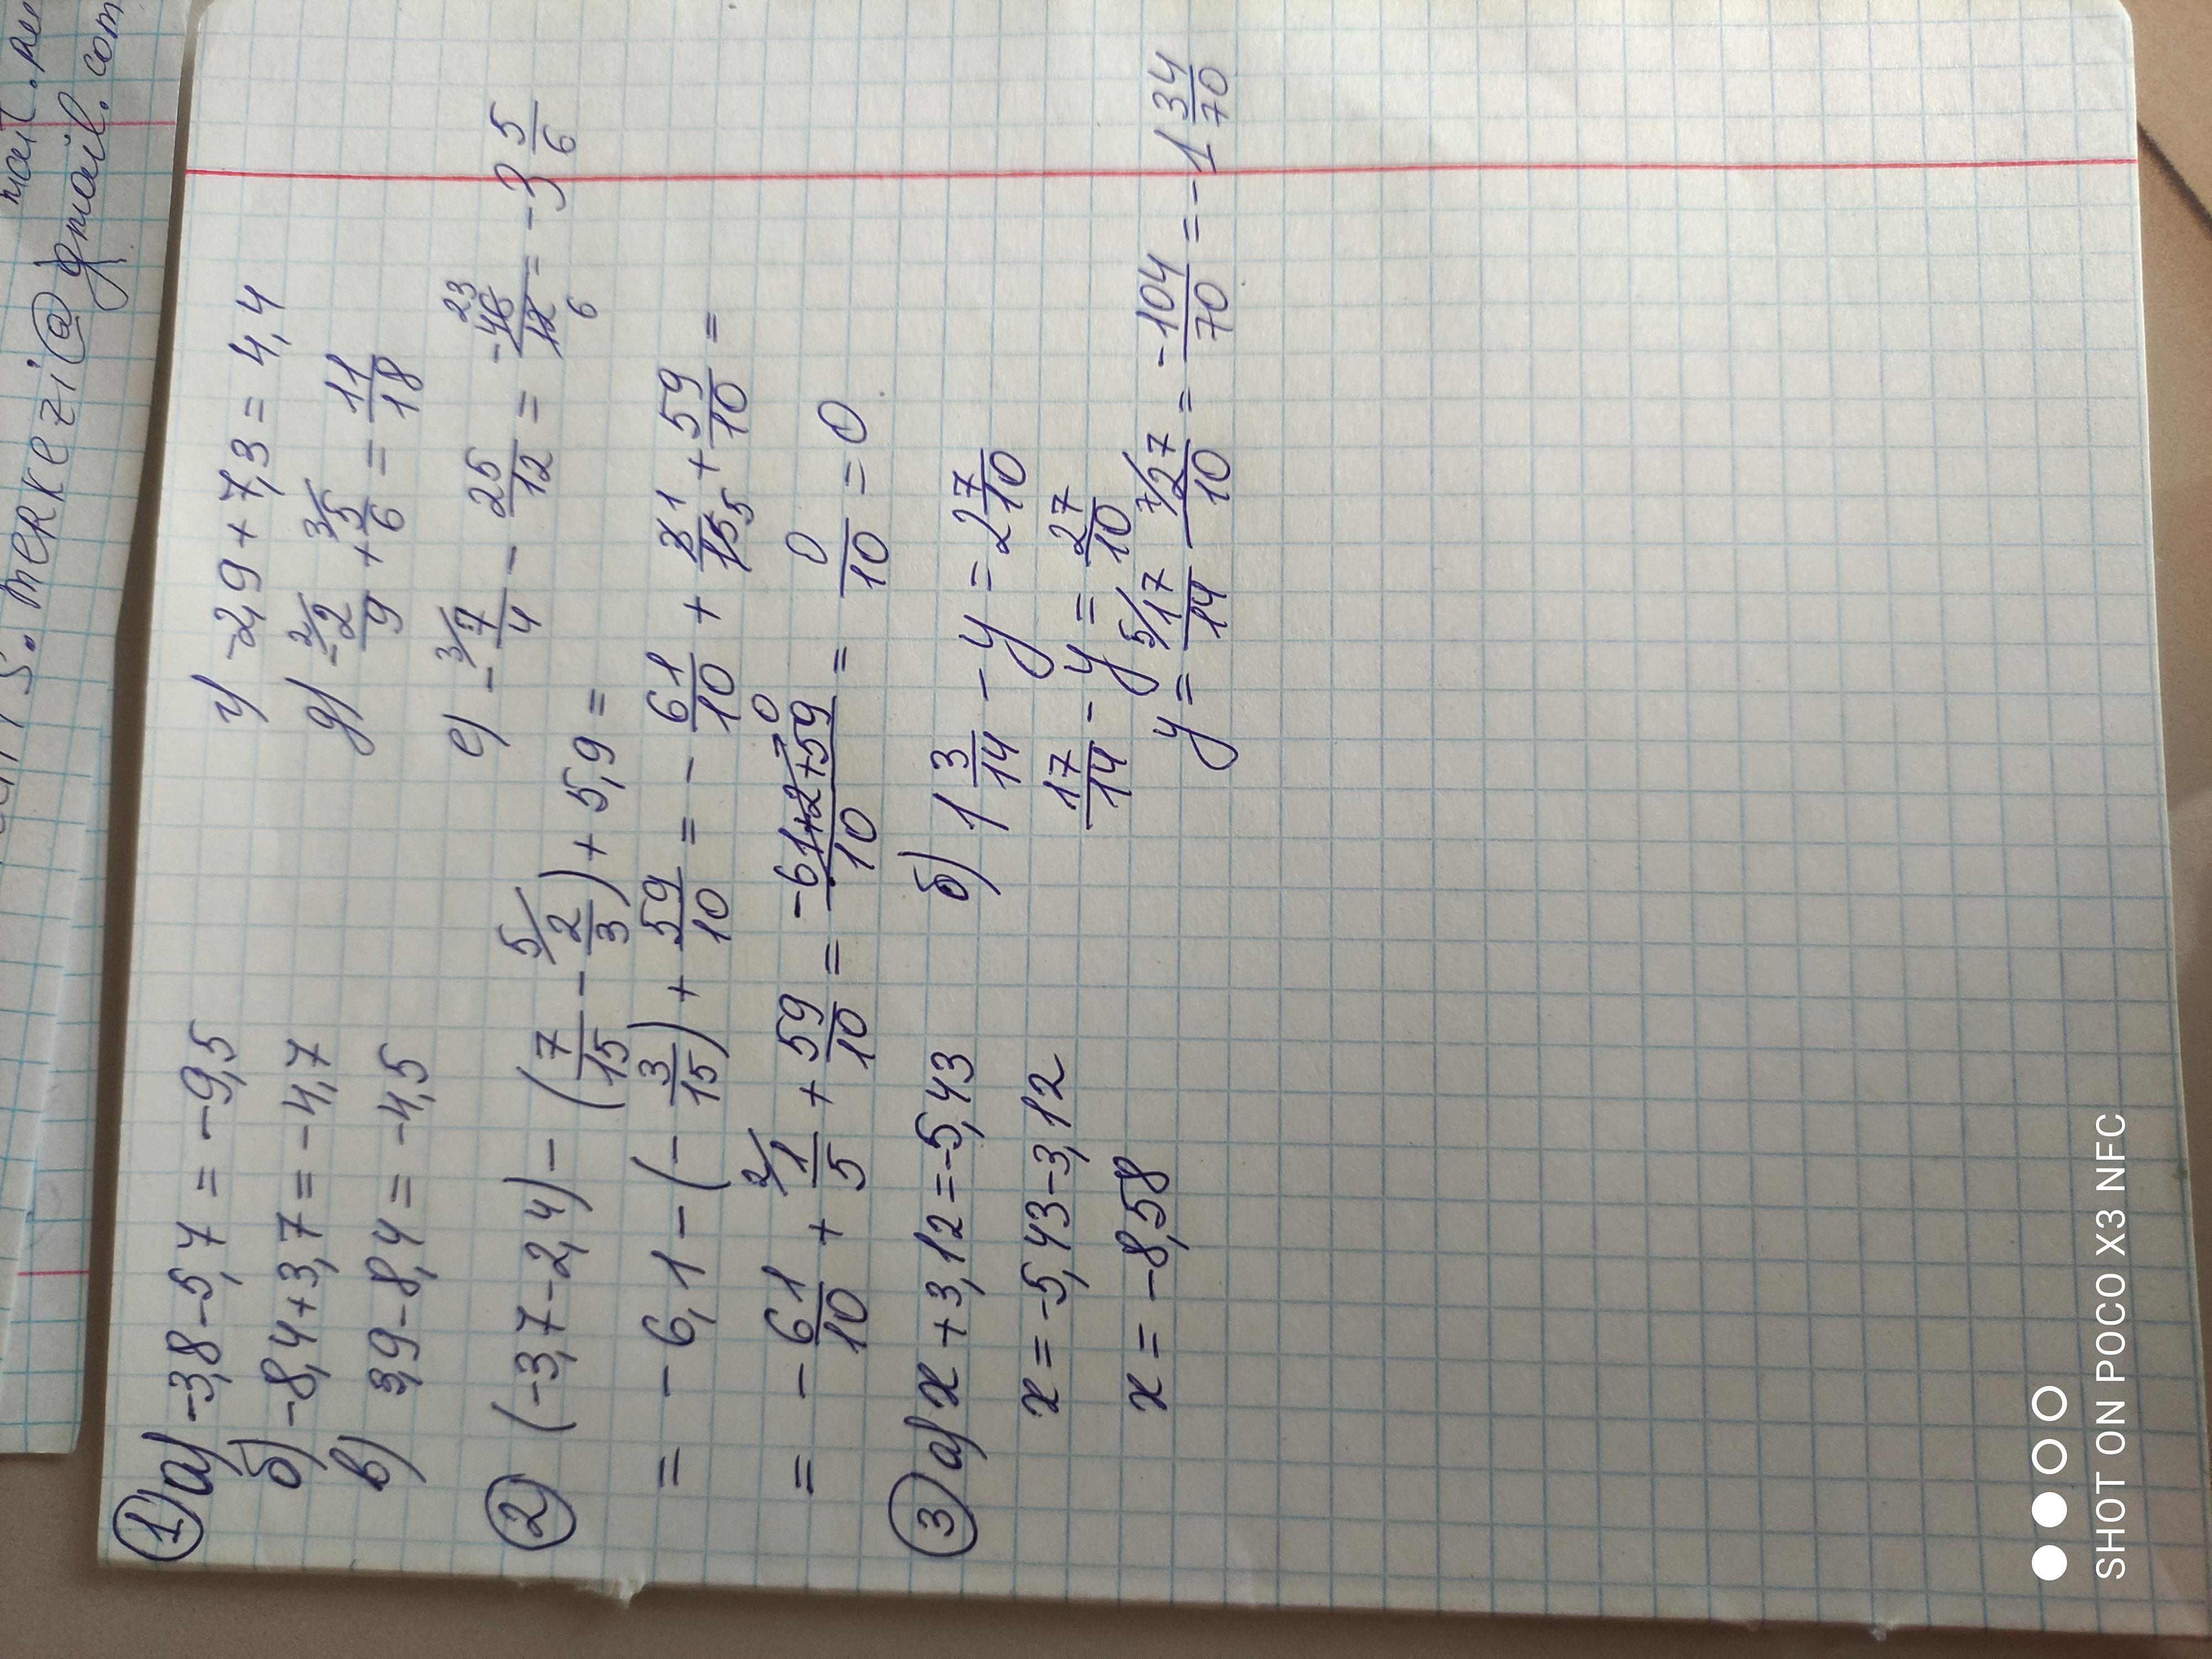 mail.ru
s.merkezi@gmail.com
① а) -3,8-5,7 = -9,5
г) -2,9+7,3 = 4,4
б) -8,4+3,7 = -4,7
д) -2/9 + 5/6 = 11/18
в) 3,9-8,4 = -4,5
е) -7/4 - 25/12 = -46/12 = -3 5/6
② (-3,7-2,4) - (7/15 - 2/3) + 5,9 =
= -6,1 - (-3/15) + 59/10 = -61/10 + 3/15 + 59/10 =
= -61/10 + 1/5 + 59/10 = (-61+2+59)/10 = 0/10 = 0
③ а) x + 3,12 = -5,43
x = -5,43-3,12
x = -8,58
б) 1 3/14 - y = 2 7/10
17/14 - y = 27/10
y = 17/14 - 27/10 = -104/70 = -1 34/70
SHOT ON POCO X3 NFC